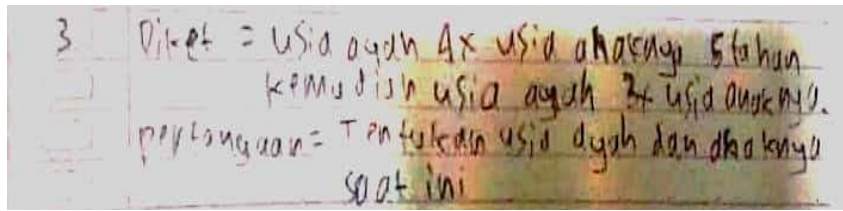 3 Diket = usia ayah 4x usia anaknya 5 tahun
kemudian usia ayah 3x usia anaknya.
pertanyaan = Tentukan usia ayah dan anaknya
saat ini